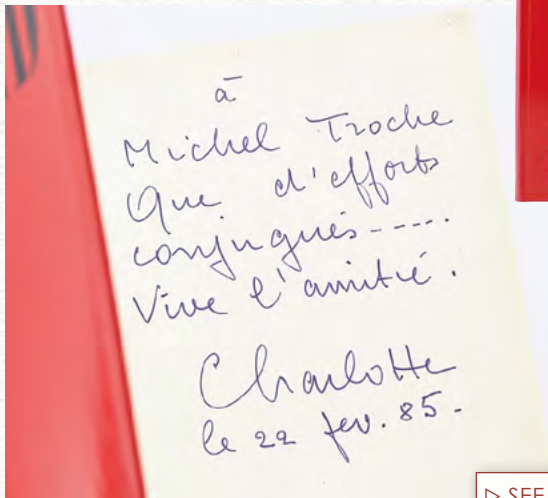 à
Michel Troche
Que d'efforts
conjugués-----.
Vive l'amitié.
Charlotte
le 22 fev. 85.-
▷ SEE